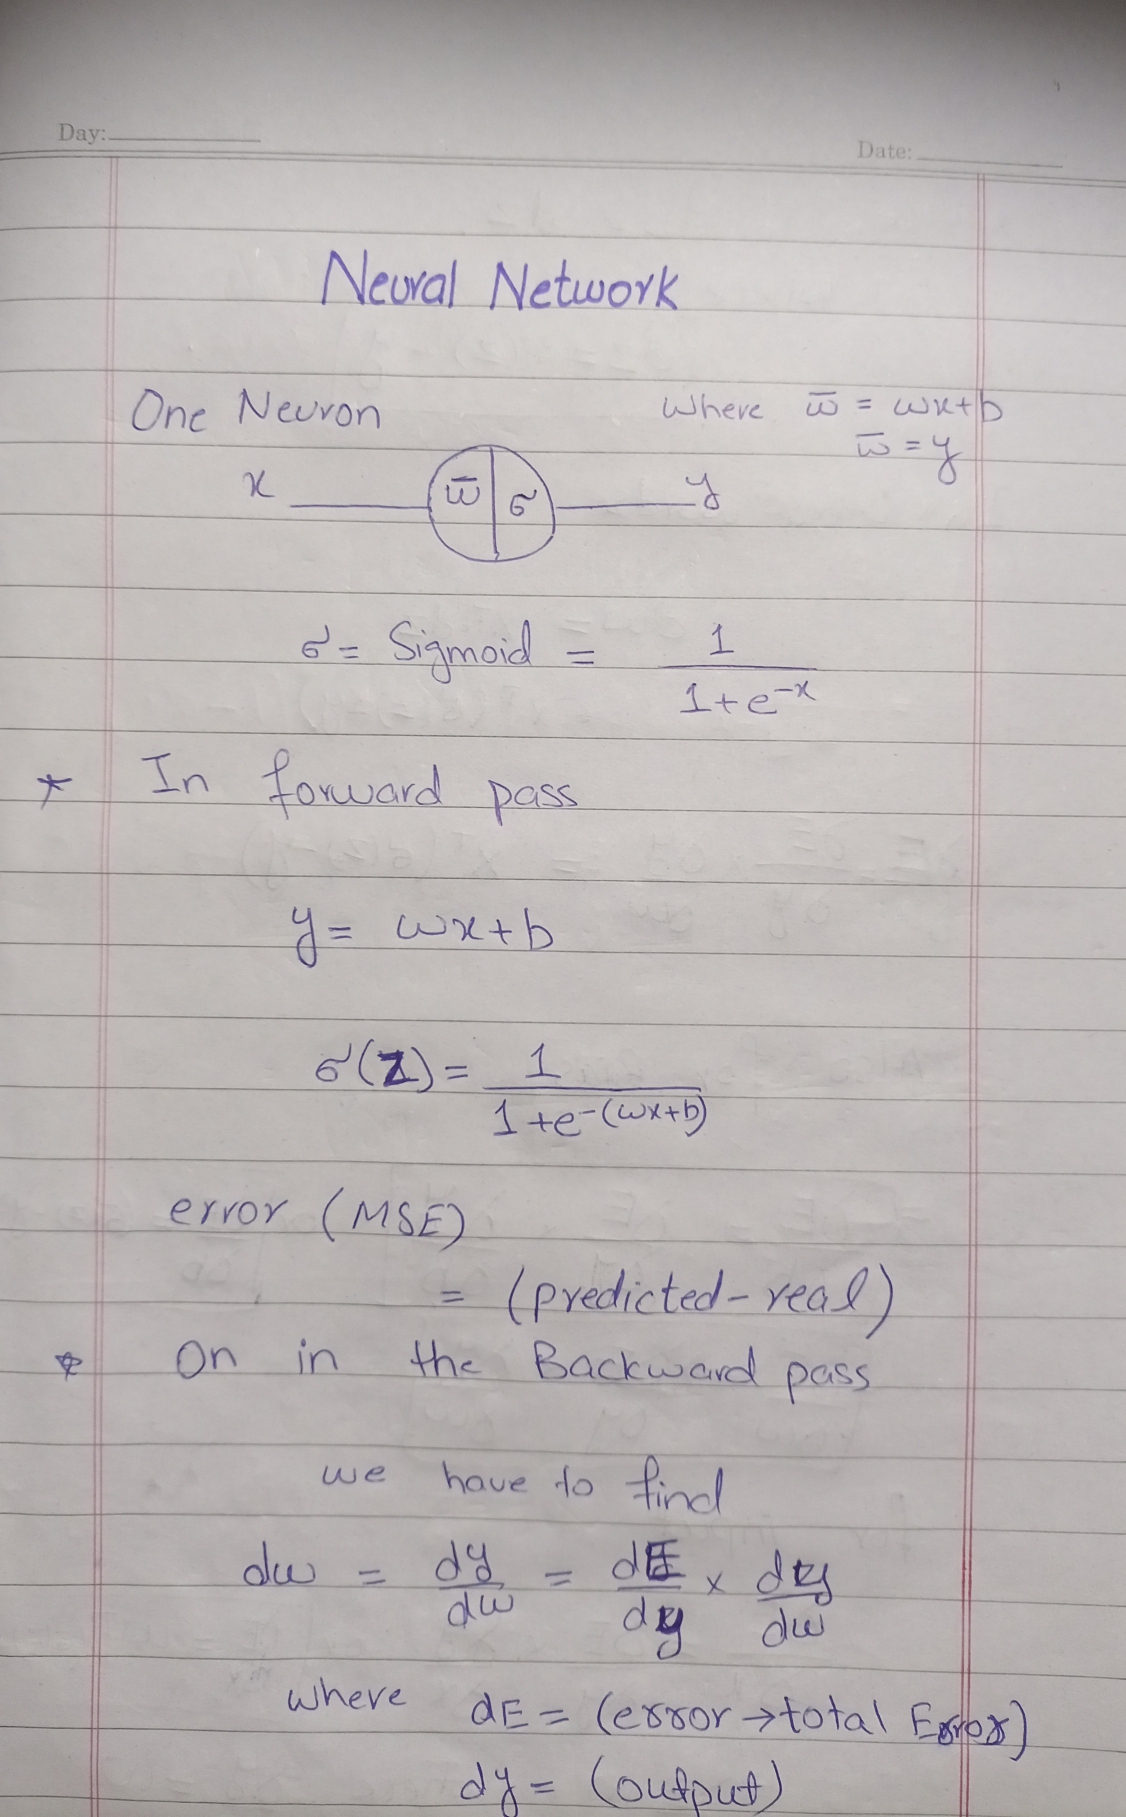 Day:
Date:
Neural Network
One Neuron
Where w̄ = wx+b
w̄ = y
x w̄ σ y
σ = Sigmoid = 1 / 1+e^-x
* In forward pass
y = wx+b
σ(z) = 1 / 1+e^-(wx+b)
error (MSE)
= (predicted-real)
* On in the Backward pass
we have to find
dw = dy/dw = dE/dy × dy/dw
where dE = (error→total Error)
dy = (output)